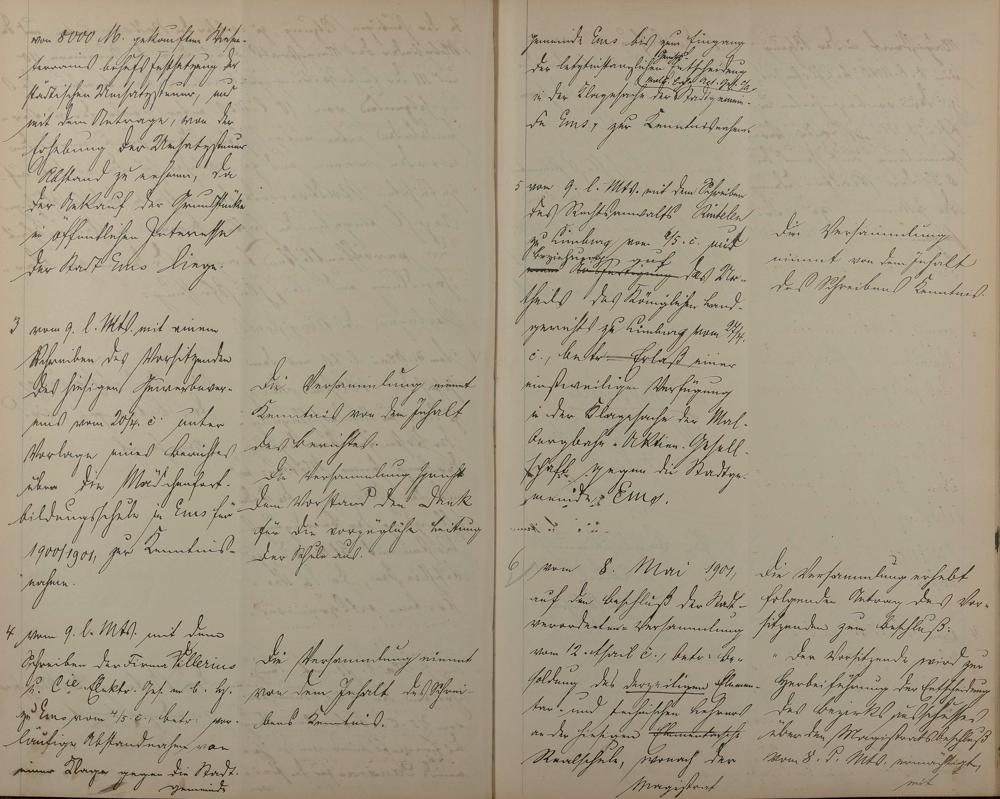 von 8000 M. gekauften Wiesen-
terrains behufs Festsetzung der
städtischen Umsatzsteuer, und
mit dem Antrage, von der
Erhebung der Umsatzsteuer
Abstand zu nehmen, da
der Ankauf der Grundstücke
im öffentlichen Interesse
der Stadt Ems liege.
3 vom 9. l. Mts. mit einem
Schreiben des Vorsitzenden
des hiesigen Gewerbever-
eins vom 20/4. c. unter
Vorlage eines Berichtes
über die Mädchenfort-
bildungsschule in Ems für
1900/1901, zur Kenntnis-
nahme.
Die Versammlung nimmt
Kenntnis von dem Inhalt
des Berichtes.
Die Versammlung spricht
dem Vorstand den Dank
für die vorzügliche Leitung
der Schule aus.
4 vom 9. l. Mts. mit dem
Schreiben der Firma
u. Cie Elektr. Ges. m. b. H.
zu Ems vom 4/5 c., betr. vor-
läufige Abstandnahme von
einer Klage gegen die Stadt-
gemeinde
Die Versammlung nimmt
von dem Inhalt des Schrei-
bens Kenntnis.
gemeinde Ems bis zum Eingang
der letztinstanzlichen Entscheidung
in der Klagesache der
Stadtgemein-
de Ems, zur Kenntnisnahme
5 vom 9. l. Mts. mit dem Schreiben
des Rechtsanwalts Rintelen
zu Limburg vom 6/5. c. mit
Beziehung auf
des Ur-
theils des Königlichen Land-
gerichts zu Limburg vom 27/4.
c., betr. Erlaß einer
einstweiligen Verfügung
in der Klagesache der Mal-
bergbahn-Aktien-Gesell-
schaft gegen die Stadtge-
meinde Ems.
Die Versammlung
nimmt von dem Inhalt
des Schreibens Kenntnis.
6 vom 8. Mai 1901,
auf den Beschluß der Stadt-
verordneten-Versammlung
vom 12. April c., betr. Be-
soldung des derzeitigen Elemen-
tar- und technischen Lehrers
an der hiesigen
Realschule, wonach der
Magistrat
Die Versammlung erhebt
folgenden Antrag des Vor-
sitzenden zum Beschluß:
"Der Vorsitzende wird zur
Herbeiführung der Entscheidung
des Bezirksausschusses
über den Magistratsbeschluß
vom 8. d. Mts. ermächtigt,
mit